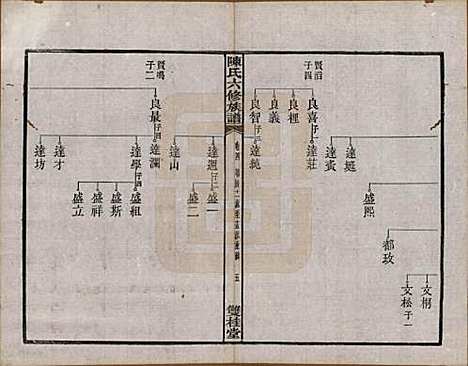 賢滔
子四
良喜 子一
良狸
良義
良智 子一
達莊
達純
達蓂
達挺
盛熙
都玫
文桐
文松 子一
陳氏六修族譜
卷四
五
雙桂堂
賢鳴
子二
良最 子四
達迥 子二
達山
盛一
盛二
達瀾
達學 子四
達才
達坊
盛組
盛斯
盛祥
盛立